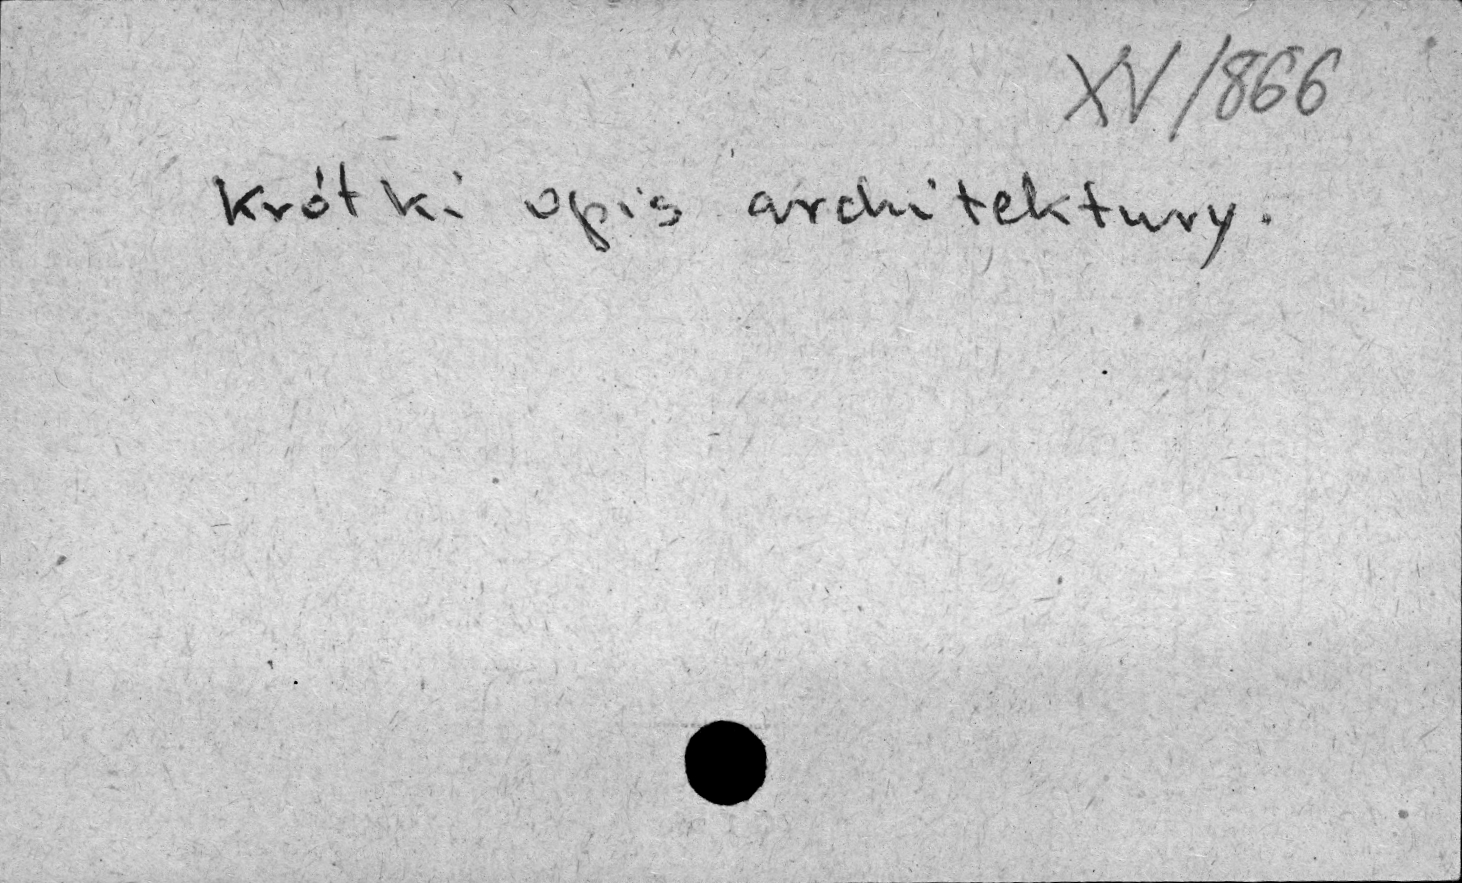 XV/866
Krótki opis architektury.